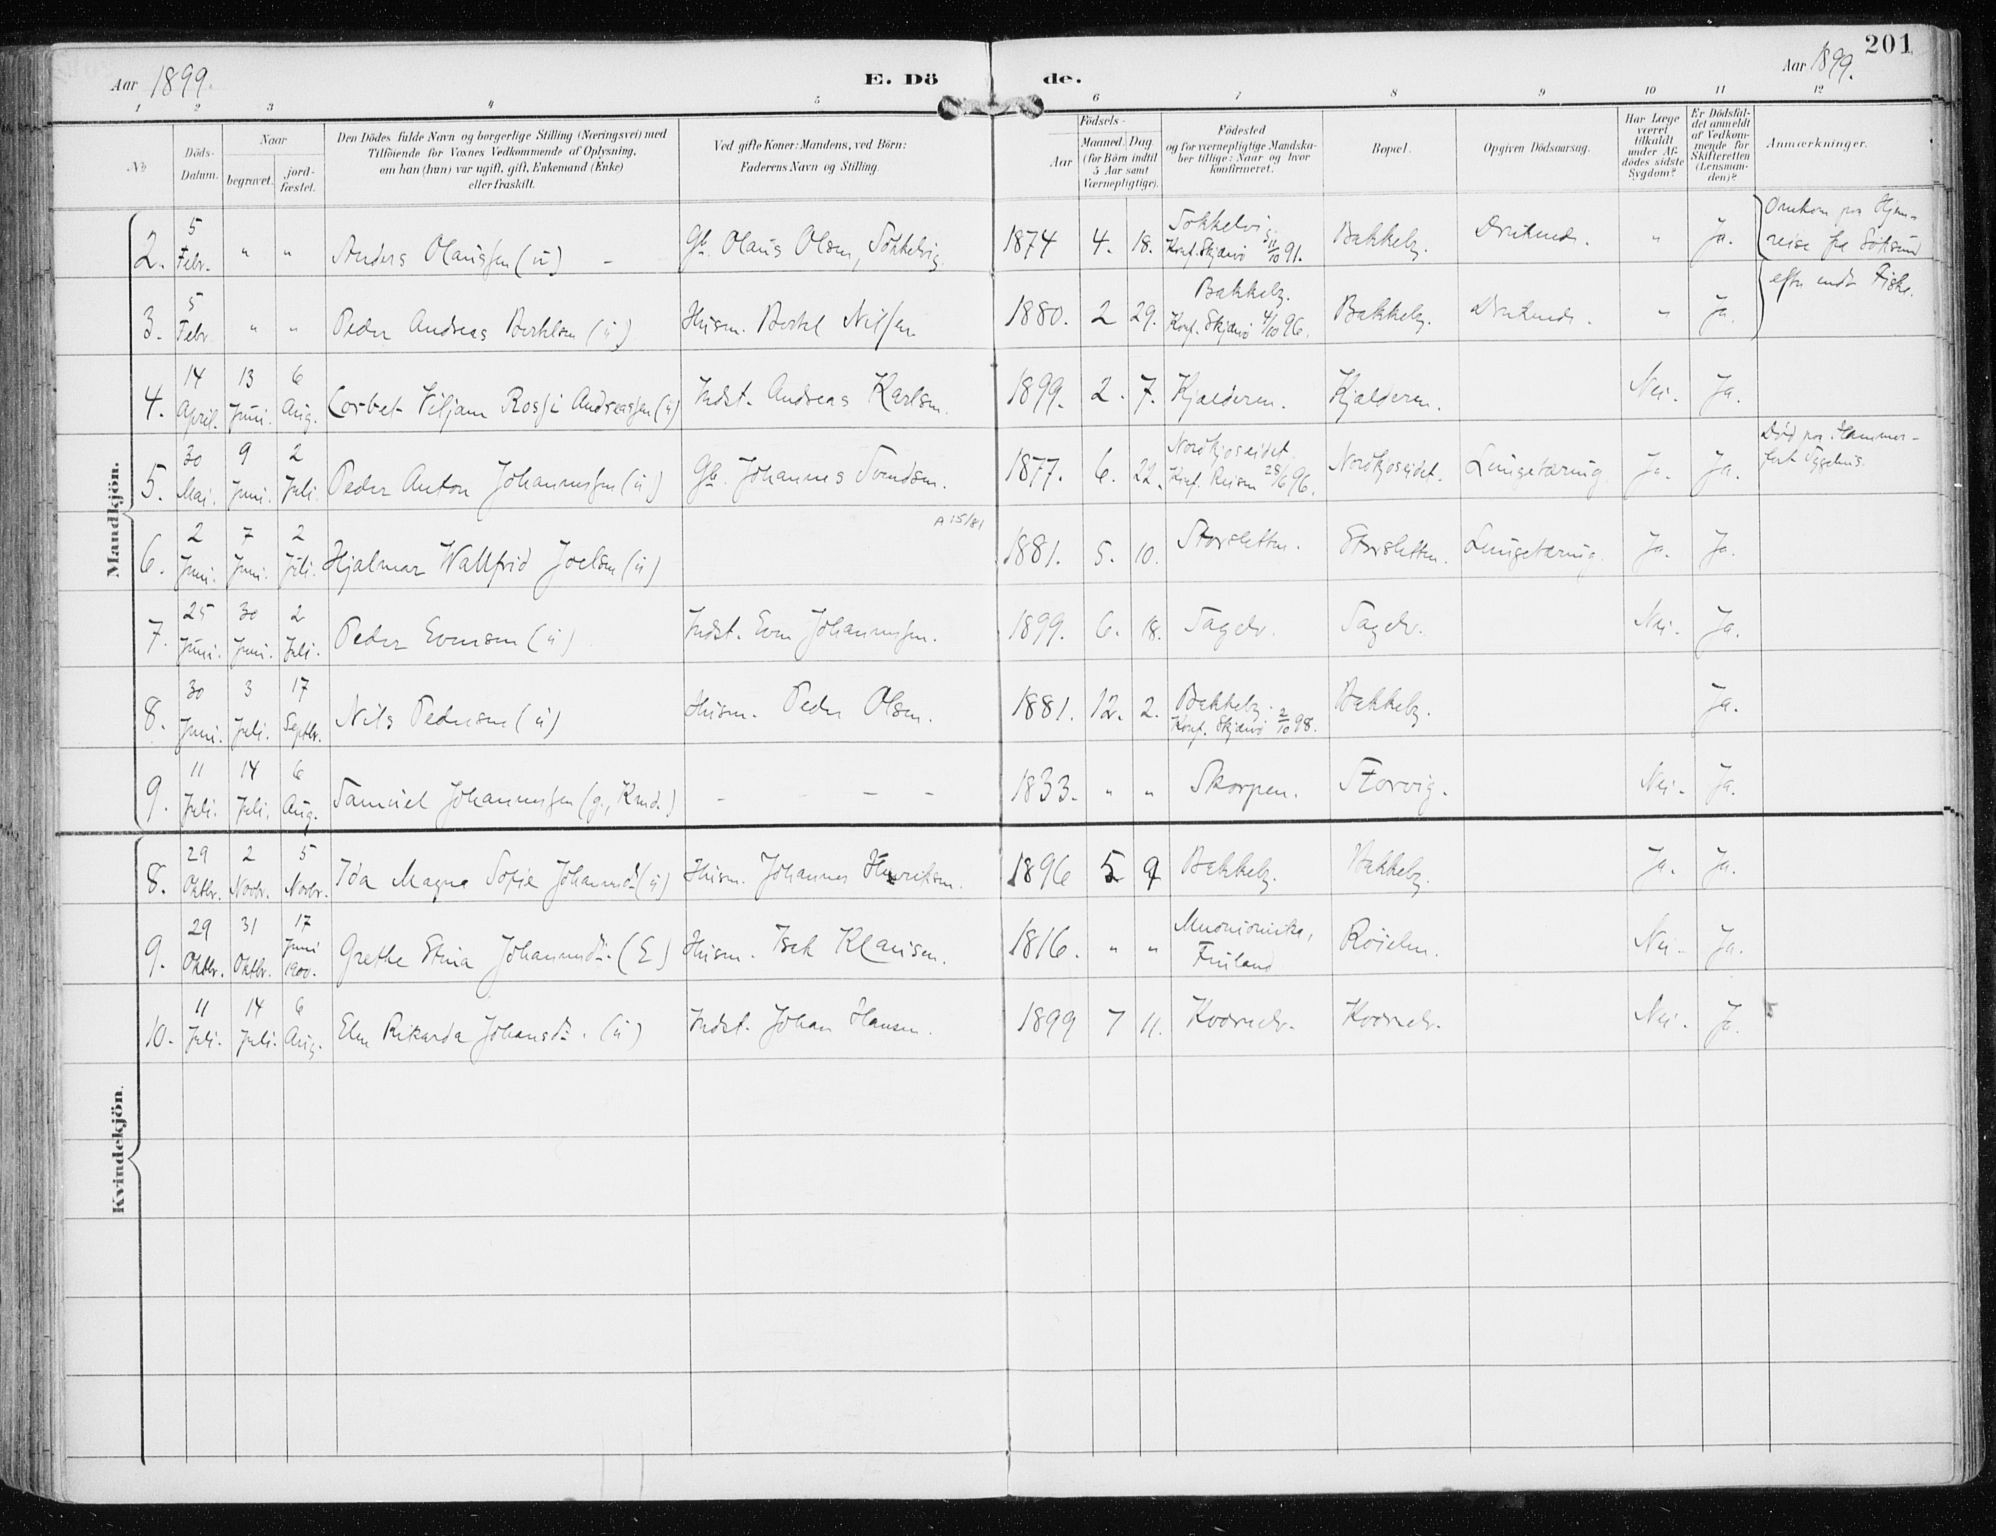 201
Aar 1899. E. Dö de. Aar 1899.
1 2 3 4 5 6 7 8 9 10 11 12
No Döds-Datum. Naar begravet. jord-fæstet. Den Dödes fulde Navn og borgerlige Stilling (Næringsvei) med Tilföiende for Voxnes Vedkommende af Oplysning, om han (hun) var ugift, gift, Enkemand (Enke) eller fraskilt. Ved gifte Koner: Mandens, ved Börn: Faderens Navn og Stilling. Födsels- Aar Maaned Dag (for Börn indtil 5 Aar samt Værnepligtige). Födested og for værnepligtige Mandskaber tillige: Naar og hvor konfirmeret. Bopæl. Opgiven Dödsaarsag. Har Læge været tilkaldt under Afdödes sidste Sygdom? Er Dödsfaldet anmeldt af Vedkommende for Skifteretten (Lensmanden)? Anmærkninger.
Mandkjön.
2. 5 Febr. " " Anders Olaussen (u) - Gb. Olaus Olsen, Sokkelvig 1874 4. 18. Sokkelvig Konf. Skjærvö 11/10 91. Bakkeby. Druknede. " Ja. Omkom paa Hjem-
reise fra
3. 5 Febr. " " Peder Andreas Berthelsen (u) Husm. Bertel Nilsen 1880. 2 29. Bakkeby. Konf. Skjærvö 4/10 96. Bakkeby. Druknede. " Ja. efter endt Fiske.
4. 14 April. 13 Juni. 6 Aug. Corbet Viljam Rossi Andreassen (u) Indst. Andreas Karlsen. 1899. 2. 7. Kjælderen. Kjælderen. Nei. Ja.
5. 30 Mai. 9 Juni. 2 Juli. Peder Anton Johannessen (u) Gb. Johannes Svendsen. 1877. 6. 22. Nordkjoseidet. Konf. 28/6 96. Nordkjoseidet. Lungetæring Ja. Ja. Död paa Hammer-
fest Sygehus.
6. 2 Juni. 7 Juni. 2 Juli. Hjalmar Wallfrid Joelsen (u) A 15/81 1881. 5. 10. Storsletten. Storsletten. Lungetæring. Ja. Ja.
7. 25 Juni. 30 Juni. 2 Juli. Peder Evensen (u) Indst. Even Johannessen. 1899. 6. 18. Sagelv. Sagelv. Nei. Ja.
8. 30 Juni. 3 Juli. 17 Septbr. Nils Pedersen (u) Husm. Peder Olsen. 1881. 12. 2. Bakkeby. Konf. Skjærvö 2/10 98. Bakkeby. Ja.
9. 11 Juli. 14 Juli. 6 Aug. Samuel Johannessen (g., Kmd.) - - - 1833. " " Skorpen. Storvig. Nei. Ja.
Kvindekjön.
8. 29 Oktbr. 2 Novbr. 5 Novbr. Ida Magna Sofie Johannesd. (u) Husm. Johannes Henriksen. 1896 5 9 Bakkeby. Bakkeby. Ja. Ja.
9. 29 Oktbr. 31 Oktbr. 17 Juni 1900. Grethe Stina Johannesd. (E) Husm. Isak Klausen. 1816. " " Muonioniska, Finland Röielen. Nei. Ja.
10. 11 Juli. 14 Juli. 6 Aug. Elen Rikarda Johansd. (u) Indst. Johan Hansen. 1899 7 11. Kodrelv. Kodrelv. Nei. Ja.